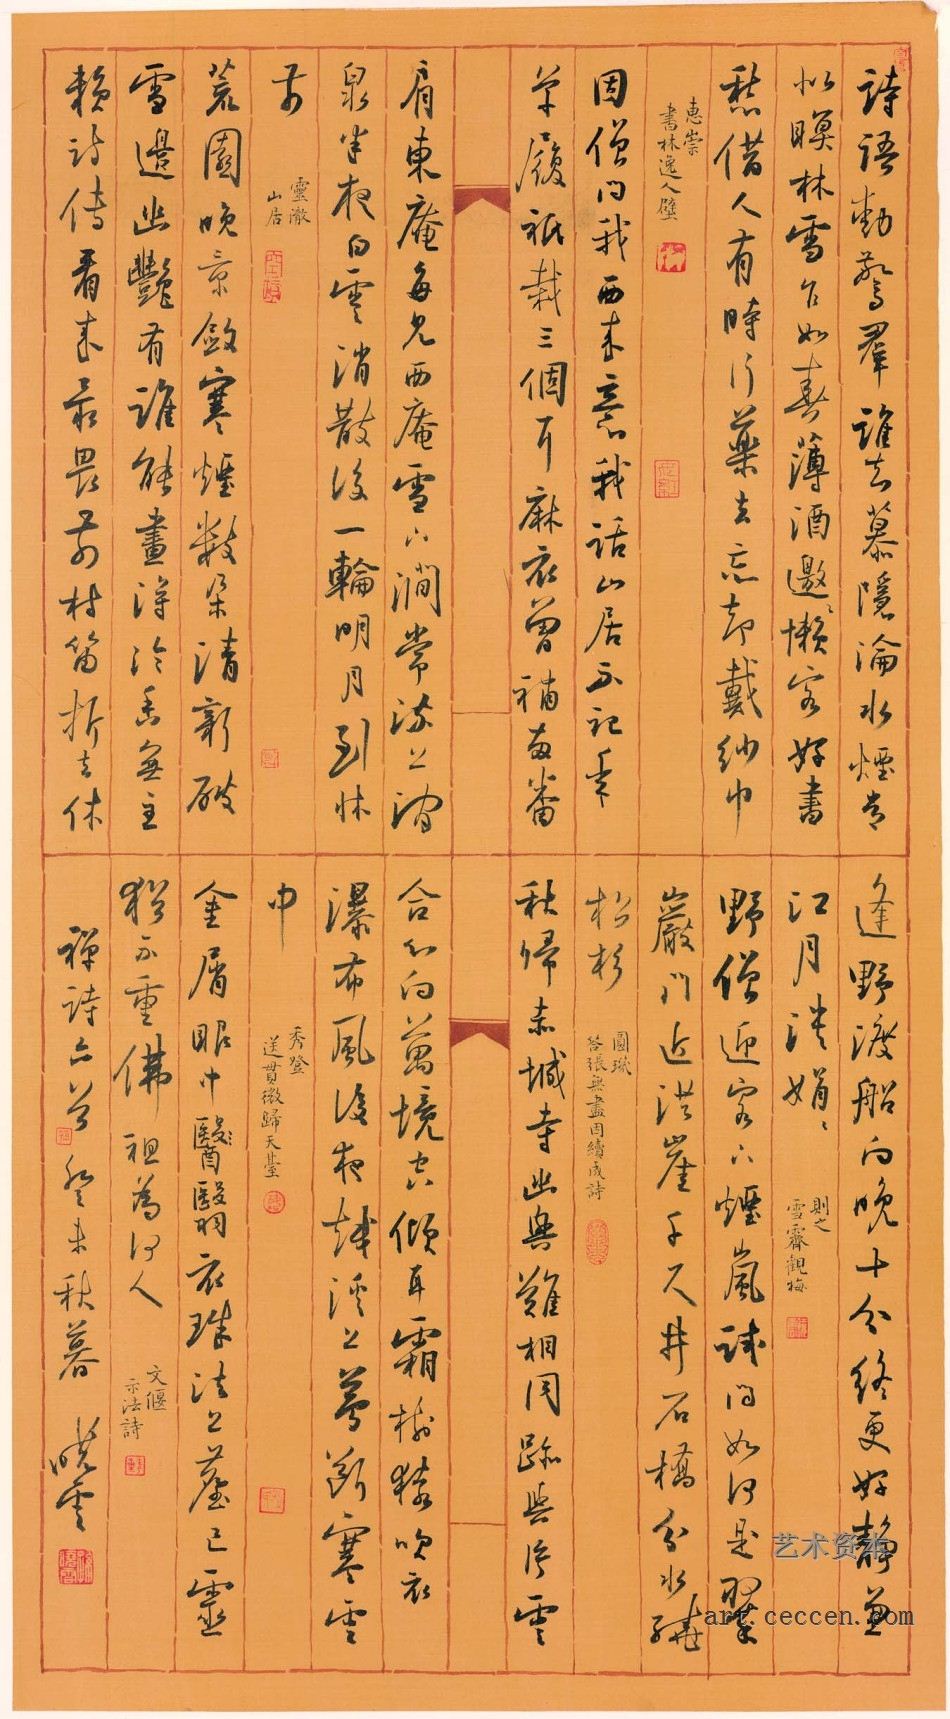 詩語動驚群誰云慕隱淪水煙常
似暝林雪乍如春薄酒邀懶客好書
愁借人有時行藥去忘卻戴紗巾
惠崇
書林逸人壁
因僧問我西來意我話山居不記年
草履祗栽三個耳麻衣曾補兩番
肩東庵每見西庵雪下澗常流上澗
泉半夜白雲消散後一輪明月到牀
前
靈澈
山居
荒園晚景斂寒煙數朵清新破
雪邊幽豔有誰能畫得冷香無主
賴詩傳看來最畏前村笛折去休
逢野渡船向晚十分終更好靜兼
江月淡娟娟
則之
雪霽觀梅
野僧迎客下煙嵐試問如何是翠
巖門近洪崖千尺井石橋分水繞
松杉
圓璣
答張無盡因續成詩
秋歸赤城寺幽興難相同跡與片雲
合心向萬境空傾耳霜樹猿吹衣
瀑布風後夜越溪上夢斷寒雲
中
秀登
送貫微歸天臺
金屑眼中醫翳衣珠法上塵己靈
猶不重佛祖為何人
文偃
示法詩
禪詩六首癸未秋暮 曉雲
艺术资本
art.ceccen.com